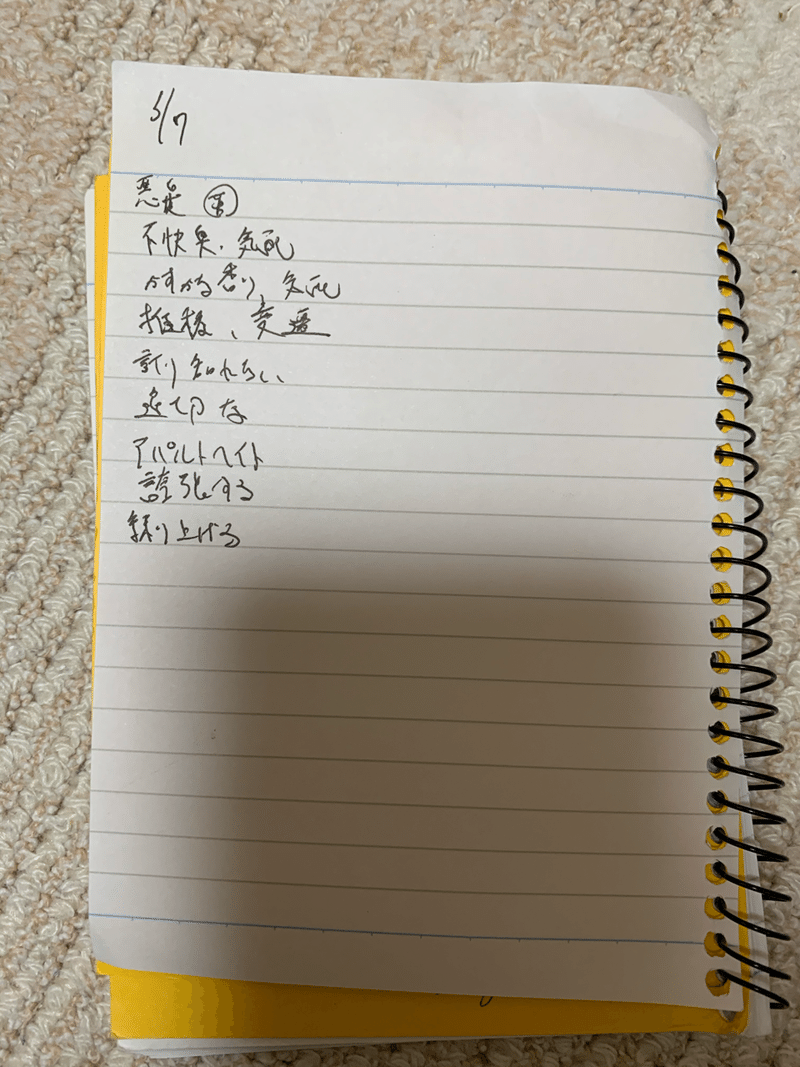 5/7
不快臭、気配
かすかな香り、気配
推移、変遷
計り知れない
適切な
アパルトヘイト
誇張する
繰り上げる